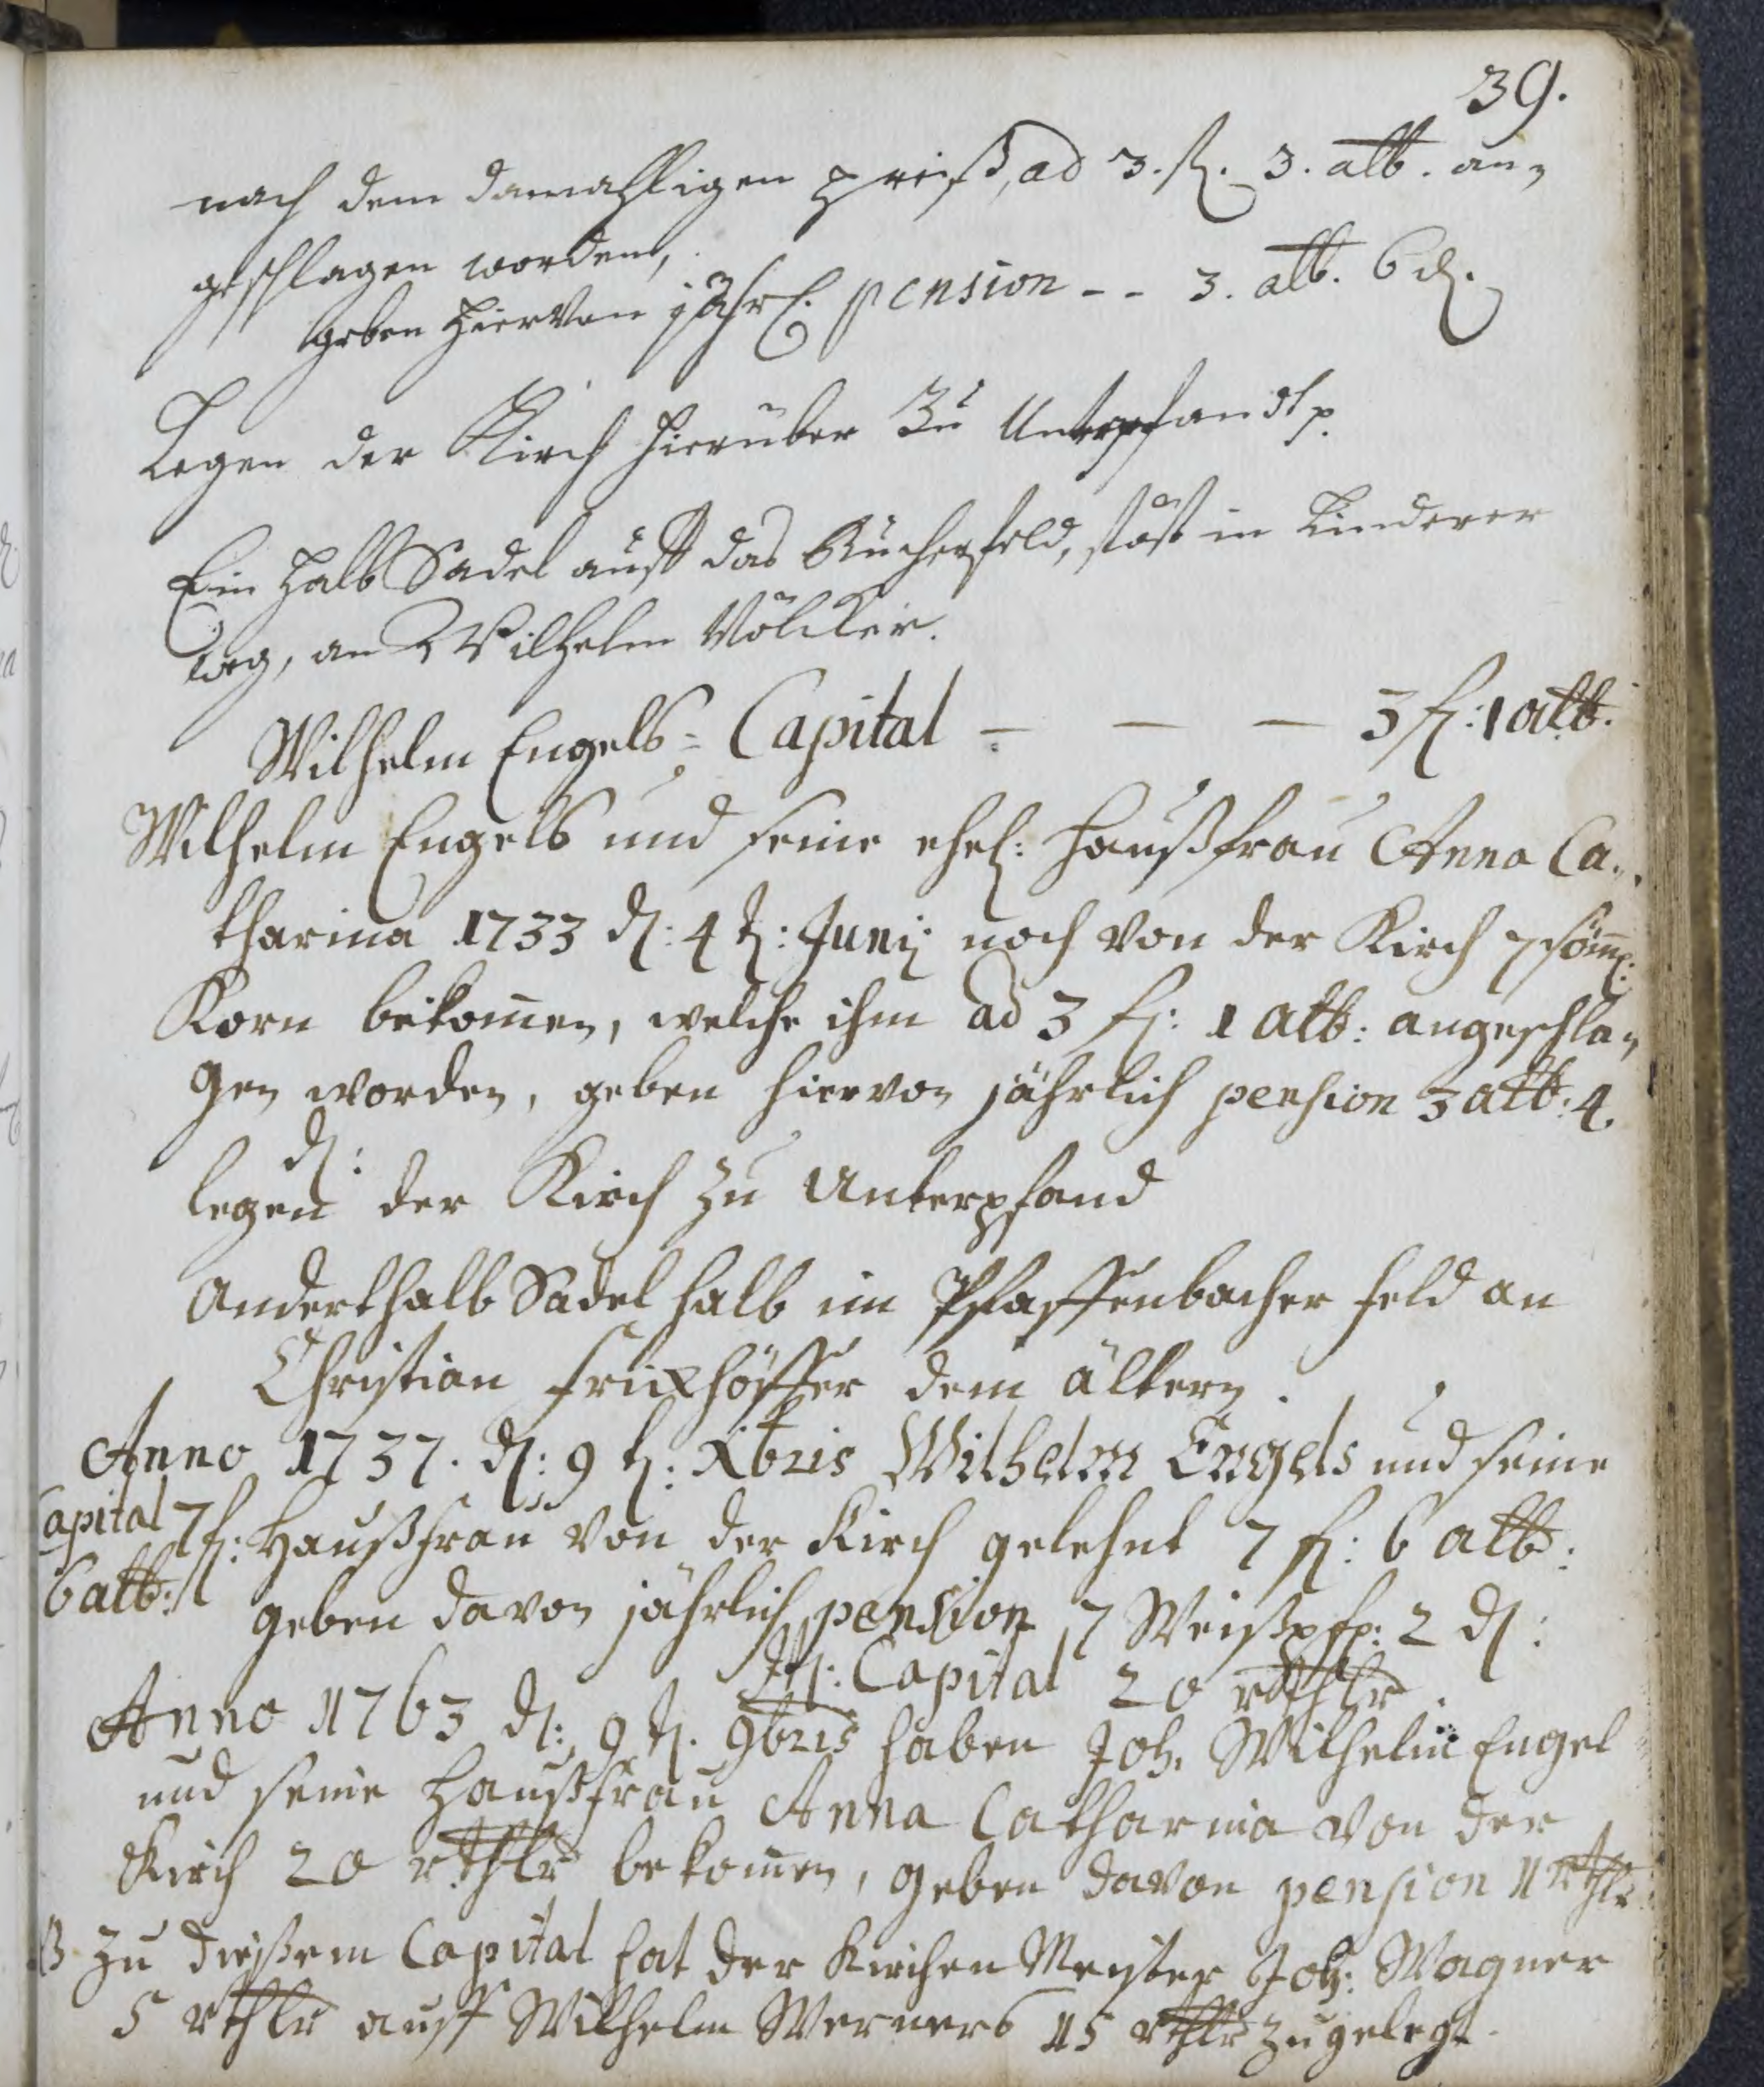 39.
nach dem damahligen preiß, ad 3. fl. 3. alb. an-
geschlagen worden,
geben hiervon jährl. pension -- 3. alb. 6 d.
Legen der Kirch hierüber Zu Unterpfandt
Ein halb Sadel auff das Bücherfeld, stost in Linderer
weg, an Wilhelm Völcker.
Wilhelm Engels = Capital — — — 3 fl: 1 alb.
Wilhelm Engels und seine ehel: Haußfrau Anna Ca-
tharina 1733 d: 4 t: Junij noch von der Kirch 7 sömm:
Korn bekomen, welche ihm ad 3 fl: 1 alb: angeschla-
gen worden, geben hiervon jährlich pension 3 alb: 4.
d:
legen der Kirch zu Unterpfand
Anderthalb Sadel halb im Pfaffenbacher feld an
Christian frickhöffer dem ältern.
Anno 1737. d: 9 t: Xbris Wilhelm Engels und seine
Capital 7 fl: Haußfrau von der Kirch gelehnt 7 fl: 6 alb:
6 alb: geben davon jährlich pension 7 Weißpf: 2 d:
Capital 20 rthlr
Anno 1763 d: 9 t. 9bris haben Joh. Wilhelm Engel
und seine Haußfrau Anna Catharina von der
Kirch 20 rthlr bekomen, geben davon pension 1 rthlr
zu dießem Capital hat der Kirchen Meister Joh: Wagner
5 rthlr auff Wilhelm Werners 15 rthlr zugelegt.